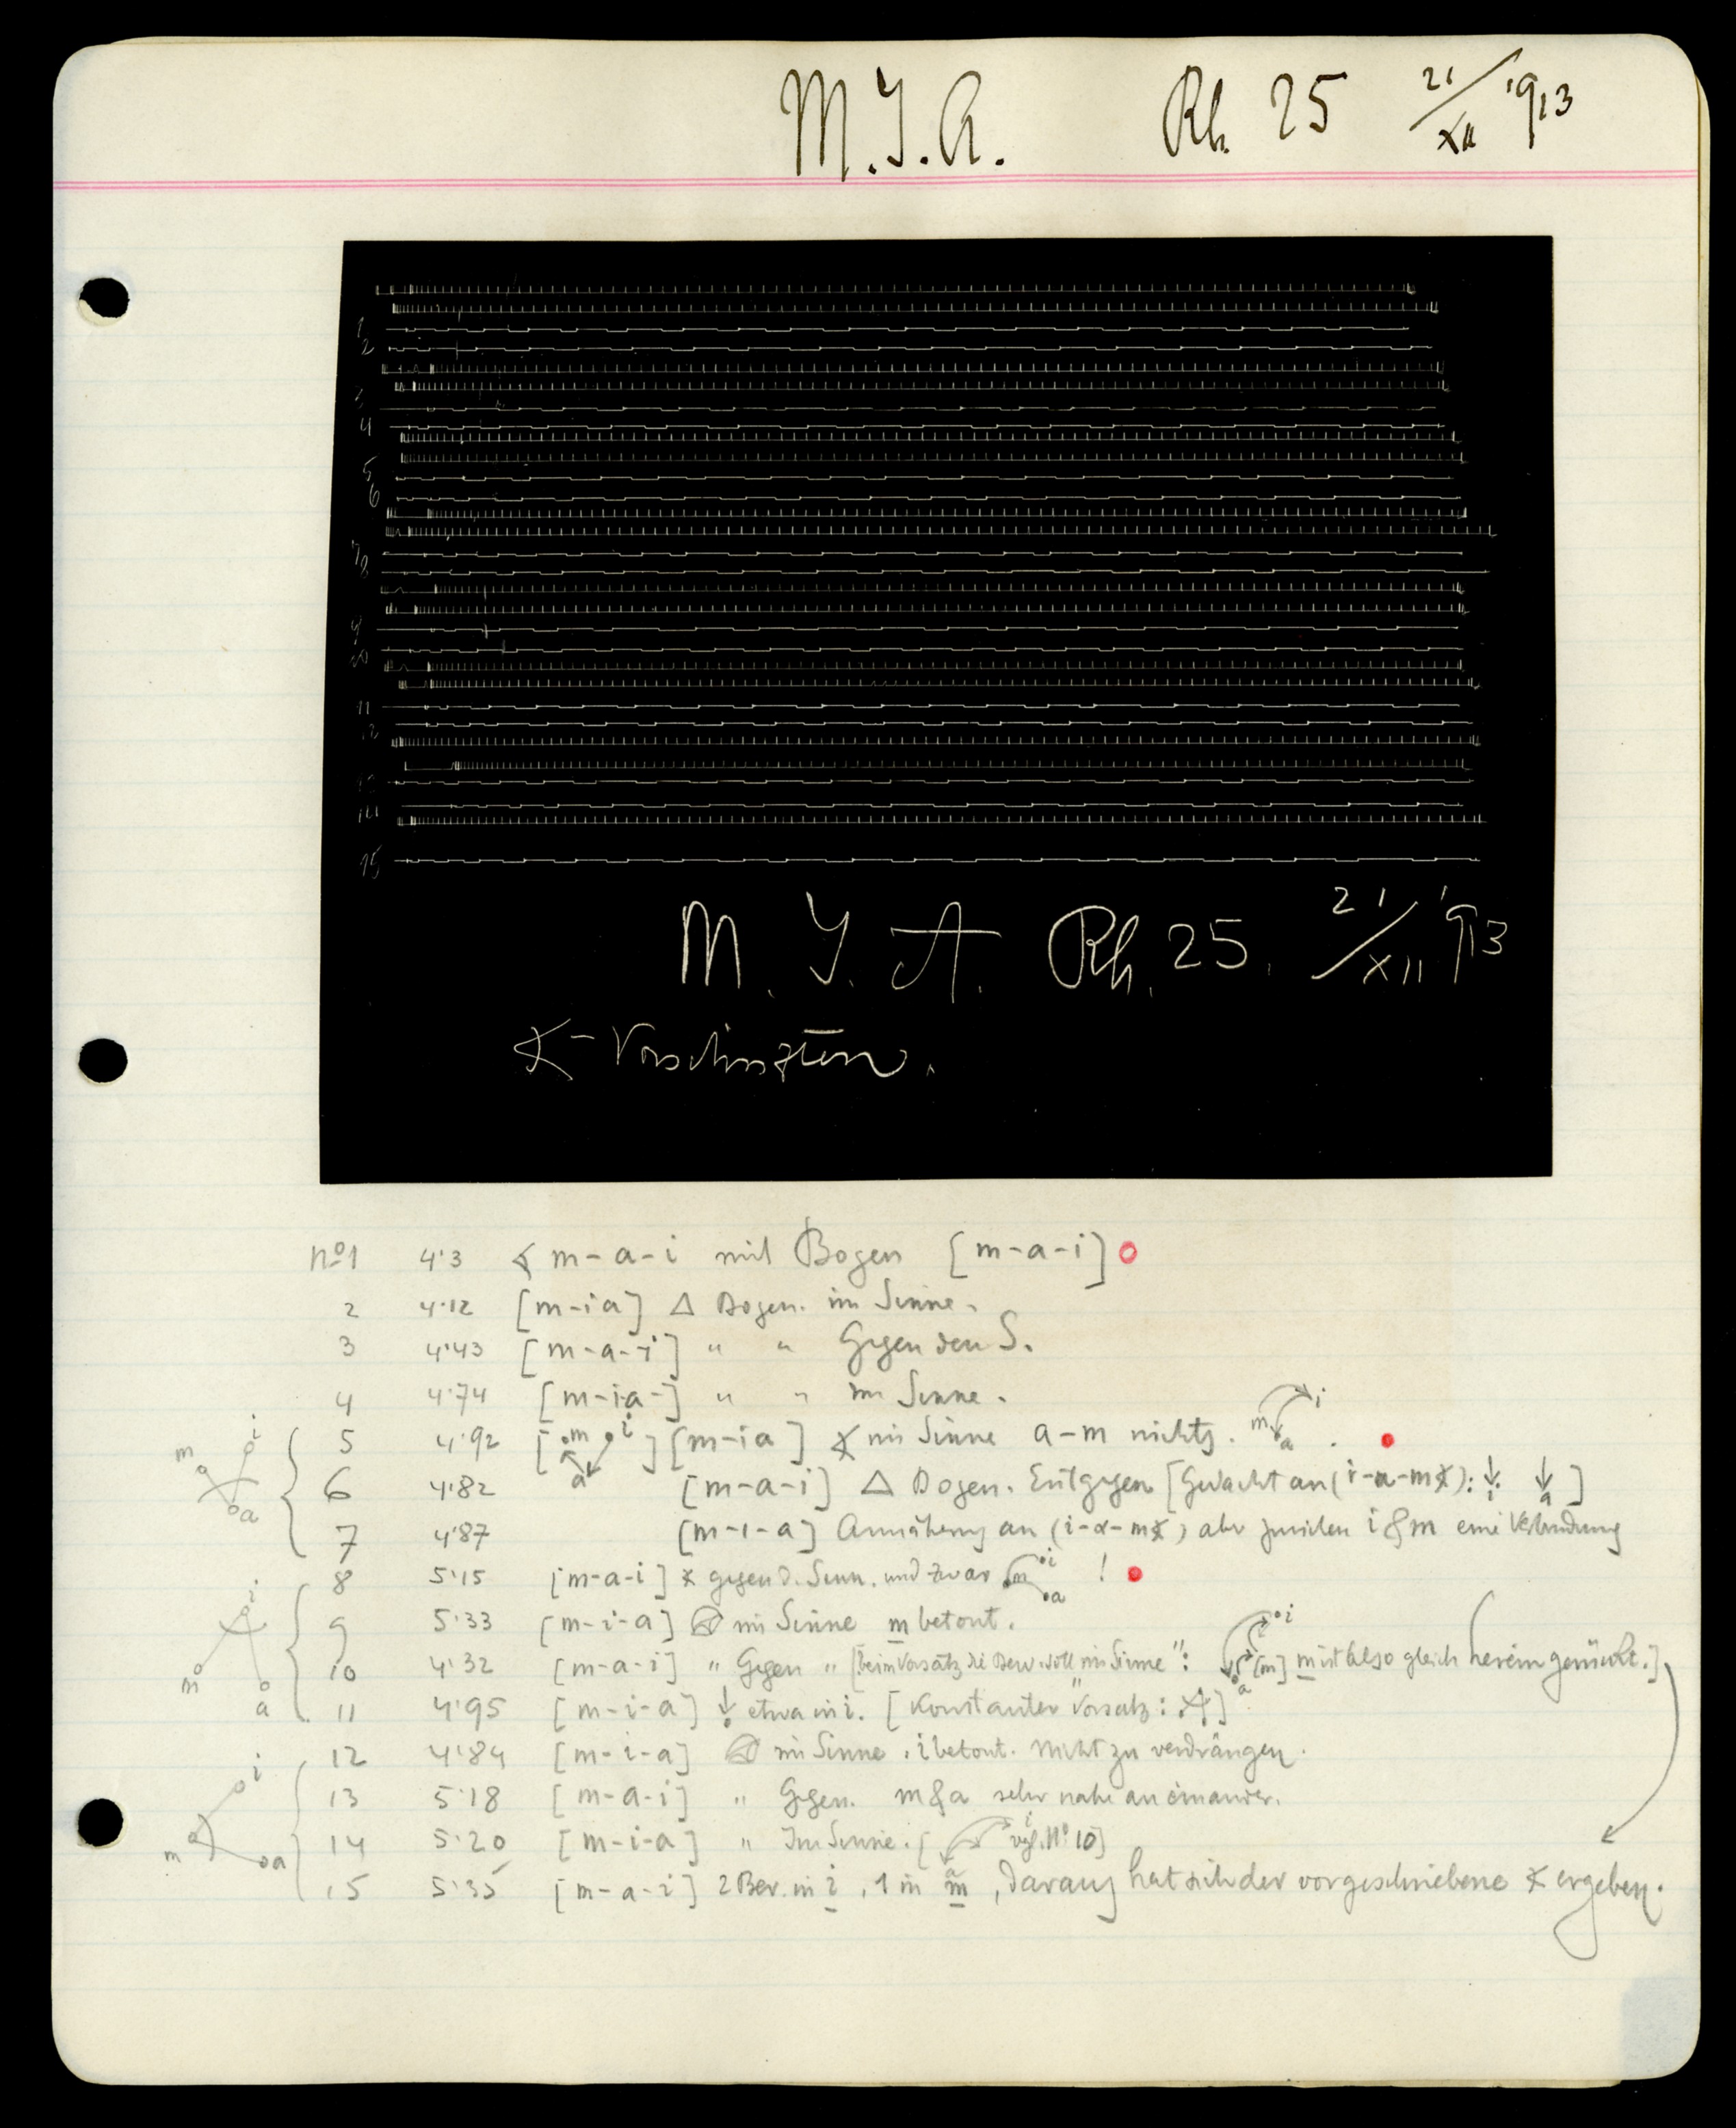 M. I. A. Rh. 25 21/XII 1913
1
2
3
4
5
6
7
8
9
10
11
12
13
14
15
M. I. A. Rh. 25. 21/XII 1913
No 1 4·3 ∢ m-a-i mit Bogen [m-a-i]
2 4·12 [m-ia] △ Bogen. im Sinne.
3 4·43 [m-a-i] " " Gegen den S.
4 4·74 [m-ia-] " " im Sinne.
5 4·92 [m i a] [m-ia] ∢ im Sinne a-m nichts. m i a
6 4·82 [m-a-i] △ Bogen. Entgegen [Gedacht an (i-a-m∢): ↓i ↓a]
7 4·87 [m-i-a] Annäherung an (i-a-m∢) aber zwischen i & m eine Verbindung
m i a
8 5·15 [m-a-i] ∢ gegen d. Sinn. und zwar m i a !
9 5·33 [m-i-a] im Sinne m betont.
10 4·32 [m-a-i] " Gegen " [beim Vorsatz die Bew. soll im Sinne": i [m] a m ist also gleich herein gerückt.]
11 4·95 [m-i-a] ↓ etwa in i. [Konstanter Vorsatz: ]
i m a
12 4·84 [m-i-a] im Sinne. i betont. Nicht zu verdrängen.
13 5·18 [m-a-i] " Gegen. m & a sehr nahe an einander.
14 5·20 [m-i-a] " Im Sinne. [i a vgl. No 10]
15 5·35 [m-a-i] 2 Bew. in i, 1 in m, daraus hat sich der vorgeschriebene ∢ ergeben.
i m a